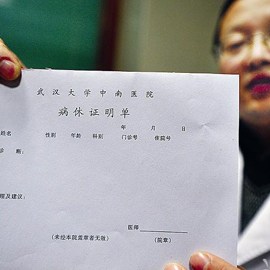 武汉大学中南医院
病休证明单
年 月 日
姓名 性别 年龄 科别 门诊号 住院号
诊 断：
理及建议：
医师
(未经本院盖章者无效) (院章)